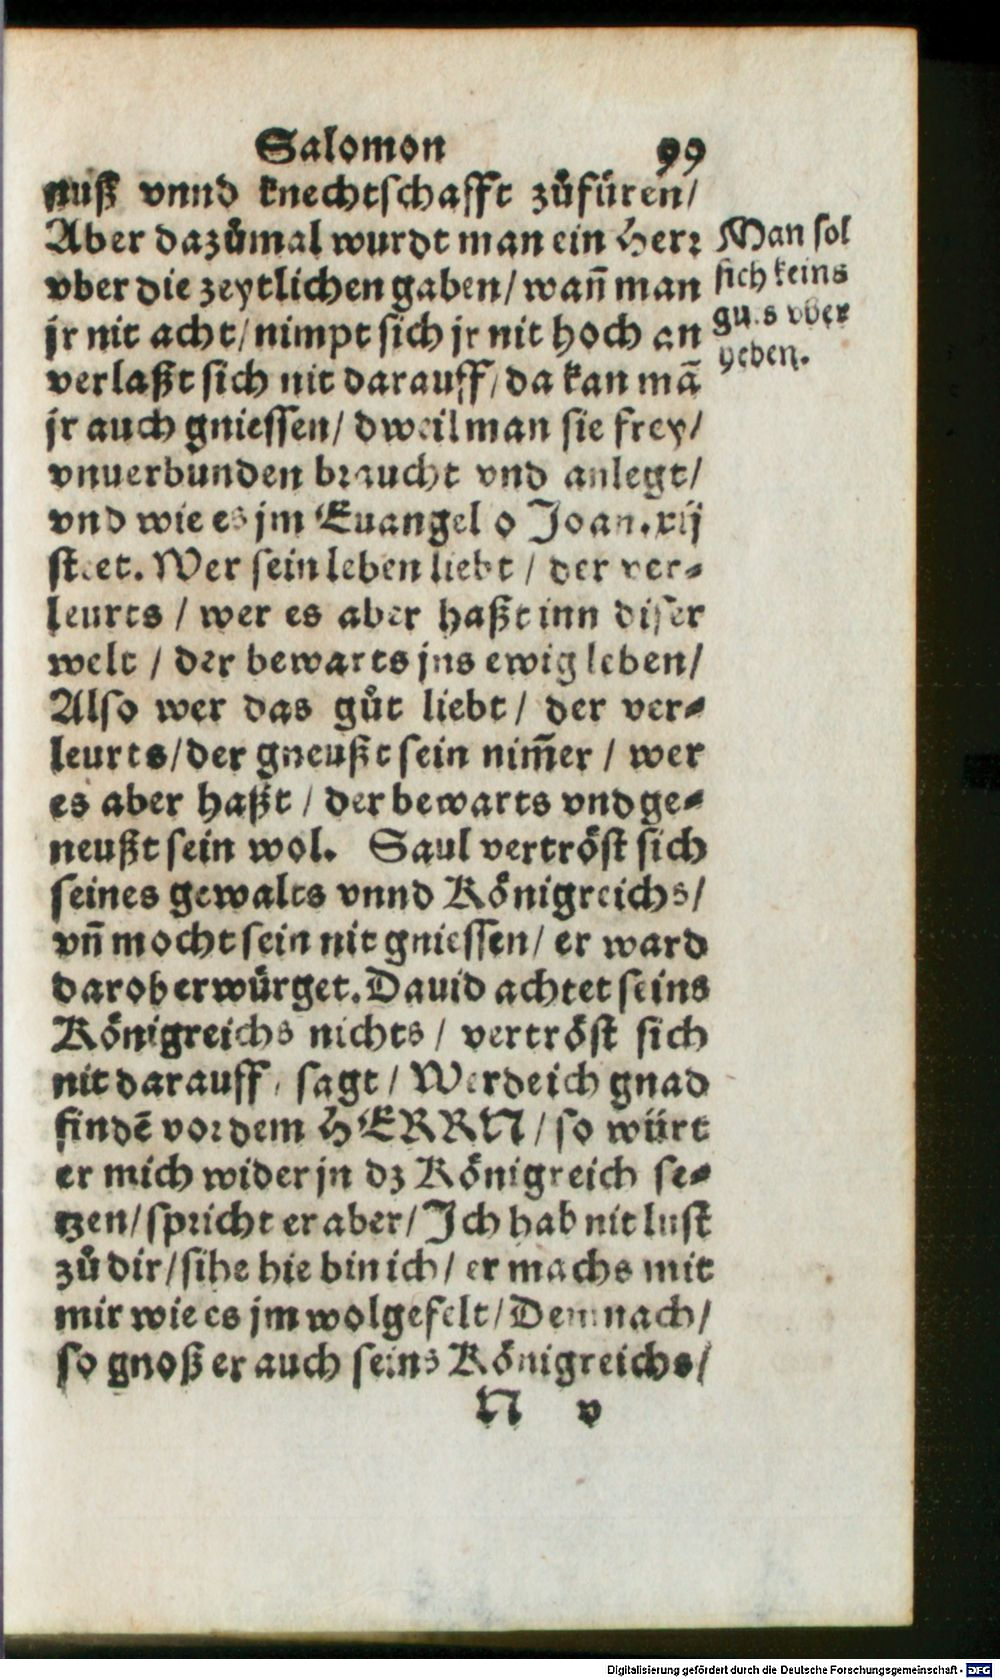 Salomon 99
nuß vnnd knechtschafft zůfüren/
Aber dazůmal wurdt man ein Herr
vber die zeytlichen gaben/ wañ man
jr nit acht/ nimpt sich jr nit hoch an
verlaßt sich nit darauff/ da kan mã
jr auch gniessen/ dweil man sie frey/
vnuerbunden braucht vnd anlegt/
vnd wie es jm Euangelio Joan. xij
steet. Wer sein leben liebt / der ver-
leurts / wer es aber haßt inn diser
welt / der bewarts jns ewig leben/
Also wer das gůt liebt / der ver-
leurts/ der gneußt sein nim̃er / wer
es aber haßt / der bewarts vnd ge-
neußt sein wol. Saul vertröst sich
seines gewalts vnnd Königreichs/
vñ mocht sein nit gniessen/ er ward
darob erwürget. Dauid achtet seins
Königreichs nichts / vertröst sich
nit darauff, sagt / Werde ich gnad
findẽ vor dem HERRN / so würt
er mich wider jn dz Königreich se-
tzen/ spricht er aber/ Ich hab nit lust
zů dir/ sihe hie bin ich/ er machs mit
mir wie es jm wolgefelt/ Demnach/
so gnoß er auch seins Königreichs/
N v
Man sol
sich keins
guts vber
heben.
Digitalisierung gefördert durch die Deutsche Forschungsgemeinschaft - DFG